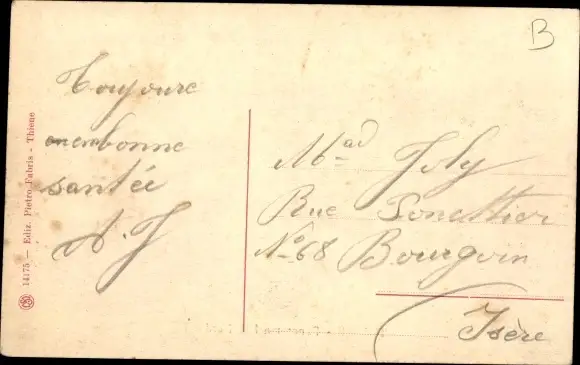 B
Toujours
en bonne
santée
A. J
Mad Joly
Rue
No 68 Bourgoin
Isère
14175 — Ediz. Pietro Fabris - Thiene